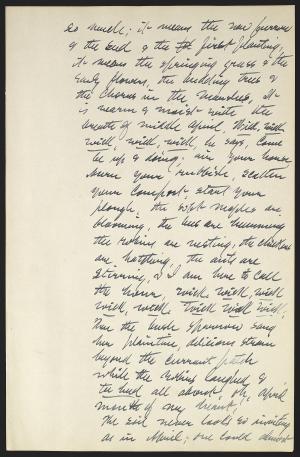 so much; it means the new furrow
& the seed & the first planting,
it means the springing grass & the
early flowers, the budding trees &
the chorus in the marshes. It
is warm & moist with the
breath of middle April. Wick, wick
wick, wick, wick, he says, come
be up & doing; air your house
burn your rubbish, scatter
your compost, start your
plough; the soft maples are
blooming, the bees are humming
the robins are nesting, the chickens
are hatching, the ants are
stirring, & I am here to call
the hour, wick, wick, wick
wick, wick, wick wick wick.
Then the bush sparrow sang
her plaintive, delicious strain
beyond the currant patch
while the robins laughed &
te-heed all about; oh, April
month of my heart,
The soil never looks so inviting
as in April; one could almost